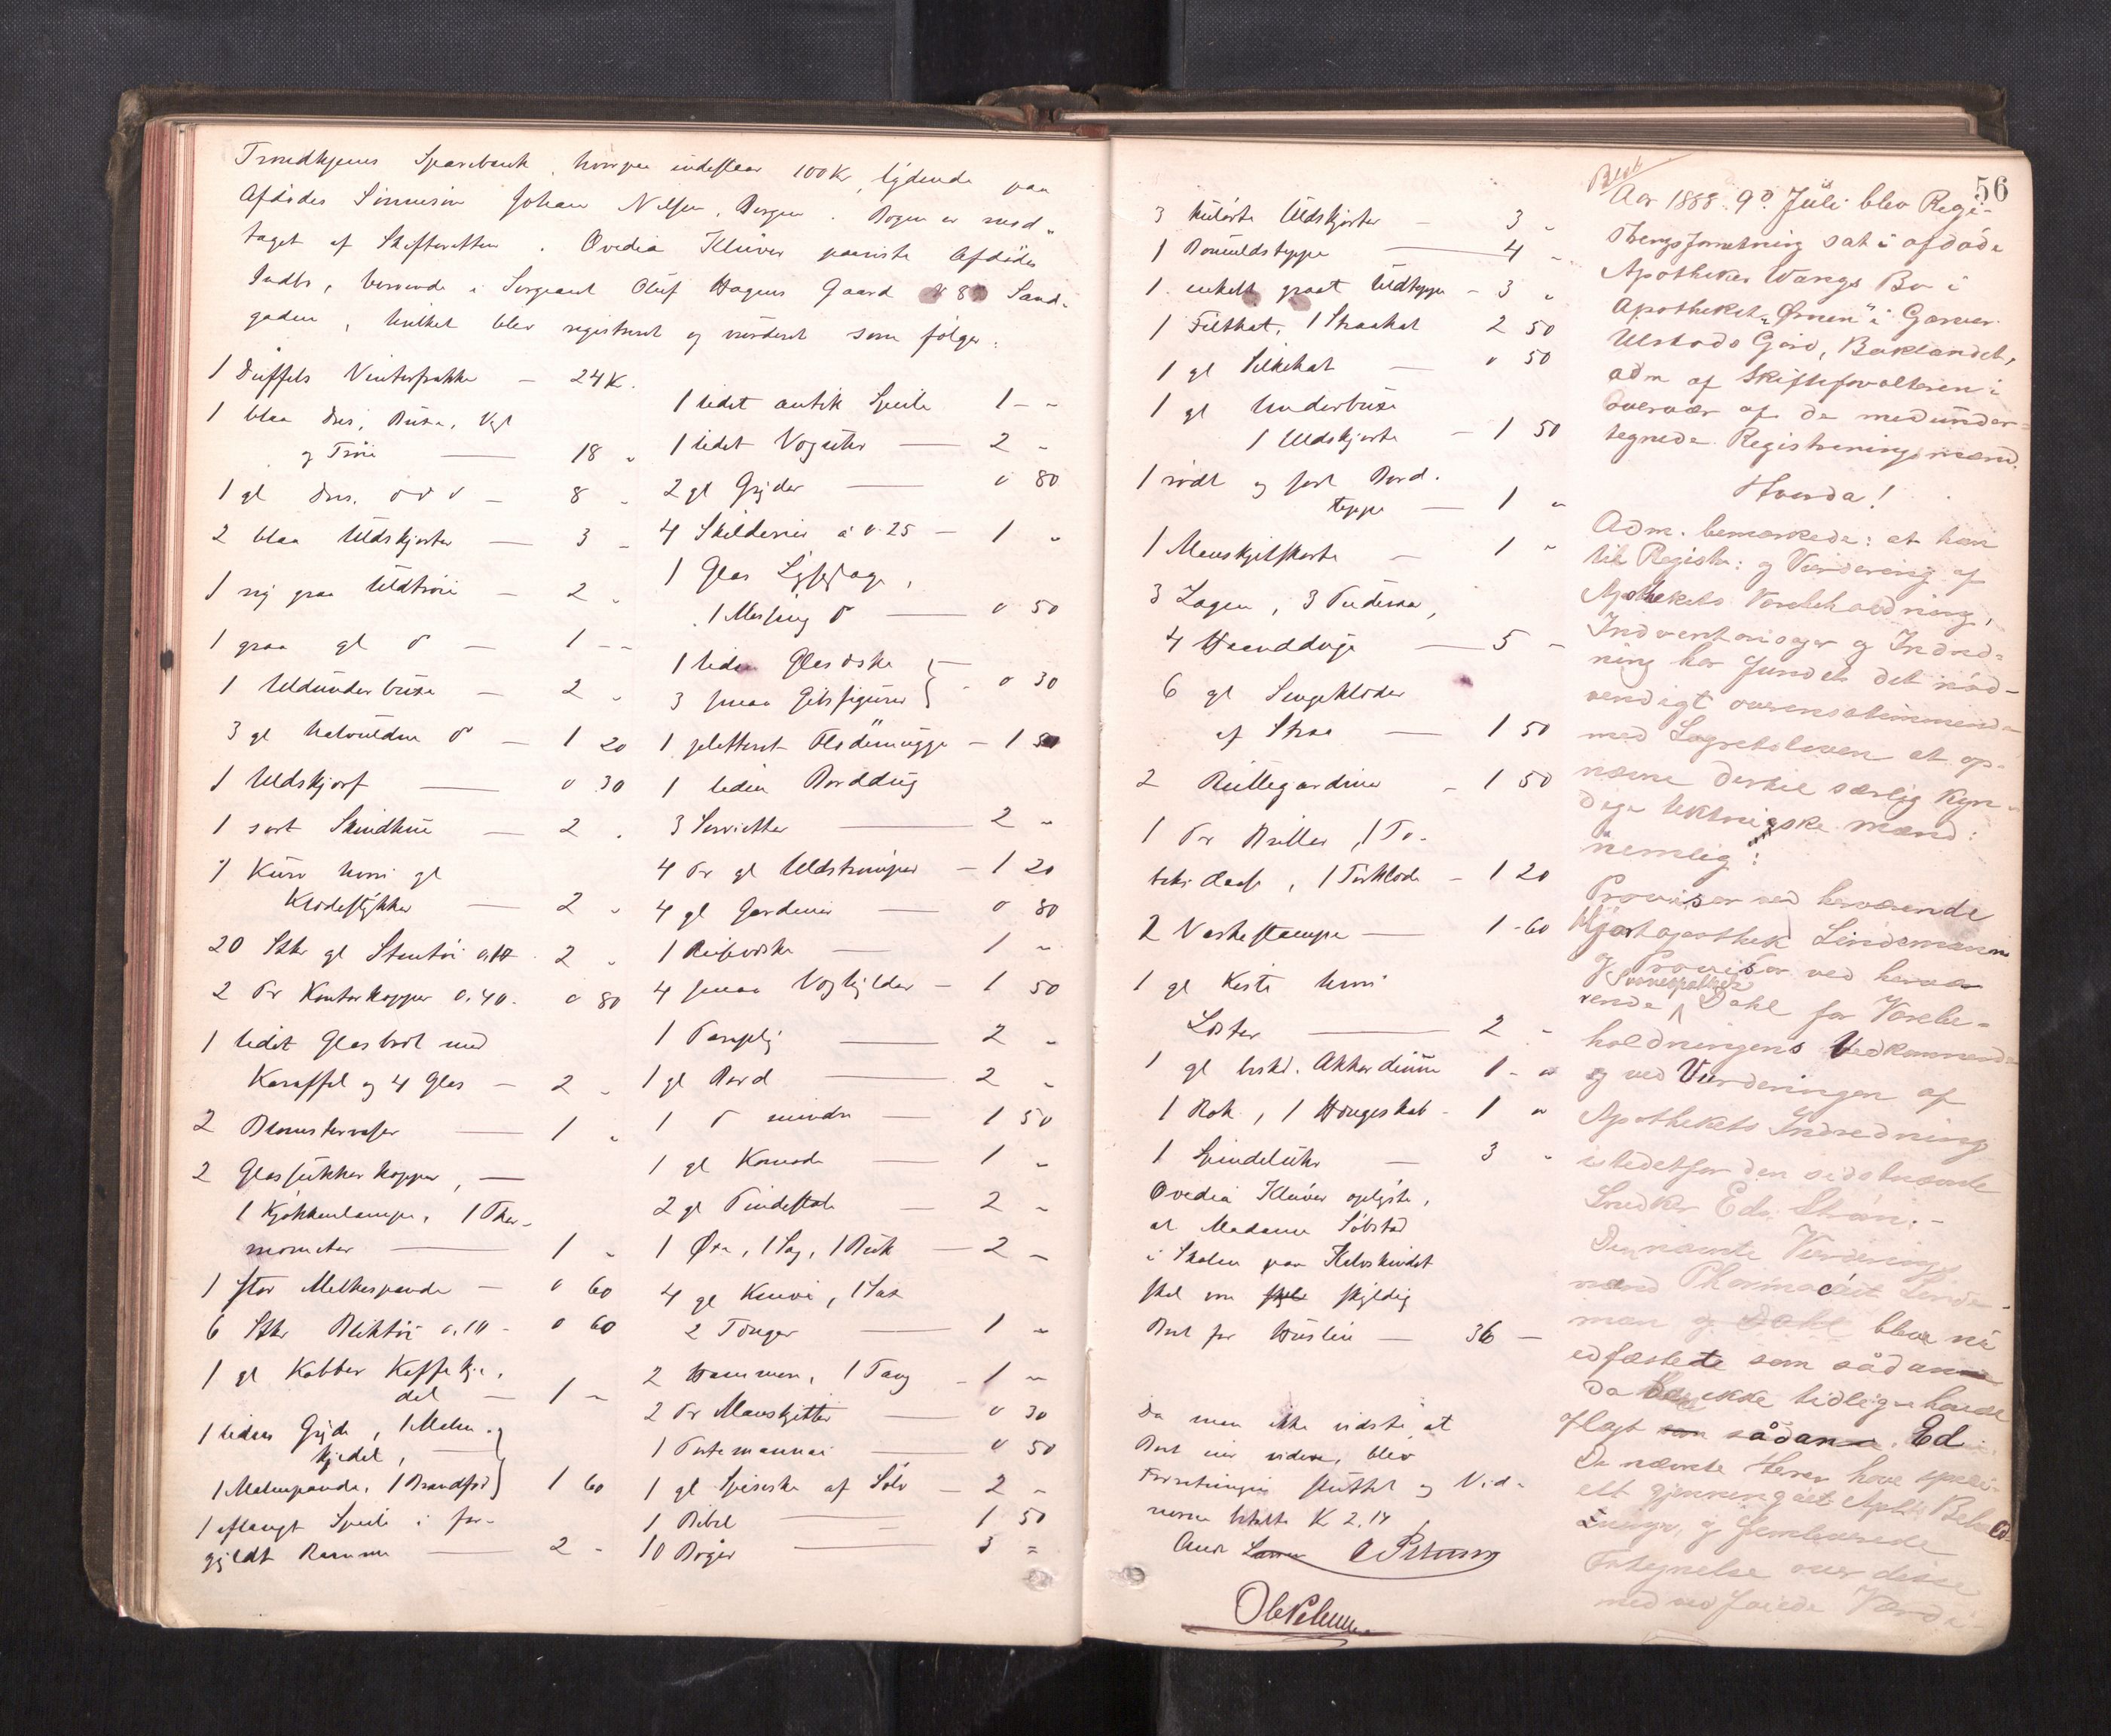 Trondhjems Sparebank, hvorpaa indestaar 100 Kr, lydende paa
Afdödes Sönnesön Johan Nilsen, Bergen. Bogen er mod-
taget af Skifteretten. Ovedia Klüver paaviste Afdödes
Indbo, beroende i Sergeant Oluf Hagens Gaard Sand-
gaden, hvilket blev registreret og vurderet som fölger:
1 Düffels Vinterfrakke — 24 K.
1 blaa Dres, Buxe, Vest
og Tröie — 18 "
1 gl Dres. — 8 "
2 blaa Uldskjorter — 3 "
1 ny graa Uldtröie — 2 "
1 graa gl do — 1 - -
1 Uldunderbuxe — 2 "
3 gl halvuldne do — 1 20
1 Uldskjorf — 0 30
1 sort Skindhue — 2 "
1 Kurv hvori gl
Klædestykker — 2 "
20 Stkr gl Stentöi — 2 "
2 Pr Kontorkopper 0.40. 0 80
1 lidet Glasbret med
Karaffel og 4 Glas — 2 "
2 Blomstervaser — 1 "
2 Glassukkerkopper, —
1 Kjökkenlampe, 1 Ther-
mometer — 1 "
1 stor Melkespande — 0 60
6 Stkr Bliktöi 0.10 - 0 60
1 gl Kobber Kaffekje-
del — 1 "
1 liden Gryde, 1 Malm-
kjedel,
1 Malmpande, 1 Brandfod 1 60
1 aflangt Speile i for-
gyldt Ramme — 2 -
1 lidet antik Speile 1 - -
1 lidet Vognter — 2 -
2 gl Gryder — 0 80
4 Skilderier á 0.25 — 1 "
1 Glas Lysestage,
1 Messing do — 0 50
1 liden Glasæske —
3 smaa Gibsfigurer - 0 30
1 pletteret Flödemugge — 1 50
1 liden Borddug
3 Servietter — 2 "
4 Pr gl Uldströmper — 1 20
4 gl Gardiner — 0 80
1 Reiseæske — 1 "
4 smaa — 1 50
1 — 2 "
1 gl Bord — 2 "
1 do mindre — 1 50
1 gl Komode — 1 "
2 gl Pindestole — 2 "
1 Öxe, 1 Sag, 1 — 2 "
4 gl Knive, 1 Sax
2 Tænger — 1 "
2 Hammere, 1 Tang - 1 "
2 Pr Manskjetter — 0 30
1 Portemonnai — 0 50
1 gl Spiseske af Sölv — 2 -
1 Bibel — 1 50
10 Böger — 3 =
3 kulörte Uldskjorter — 3 "
1 Bomuldsteppe — 4 "
1 enkelt graat Uldteppe - 3 "
1 Filthat, 1 Straahat 2 50
1 gl Silkehat — 0 50
1 gl Underbuxe
1 Uldskjorte — 1 50
1 rödt og sort Bord-
teppe — 1 "
1 Manskjetskjorte — 1 "
3 Lagen, 3 Pudevar,
4 Haandduge — 5 -
6 gl Sengeklæder
af Straa — 1 50
2 Rullegardiner - 1 50
1 Pr Briller, 1 To-
baksdaase, 1 Törklæde - 1 20
2 Vaskestampe — 1 - 60
1 gl Kiste hvori
Lister — 2 -
1 gl besk. Akkordium 1 - "
1 Rok, 1 Hængeskab - 1 "
1 Spindeluhr — 3 "
Ovedia Klüver oplyste,
at Madame Söbstad
i Skolen paa Kalvskindet
skal være skyldig
Boet for Husleie — 36 —
Da man ikke vidste, at
Boet eier videre, blev
Forretningen sluttet og Vid-
nerne betalte K 2.14
56
Aar 1888. 9d Juli blev Regi-
streringsforretning sat i afdöde
Apotheker Wangs Bo i
Apotheket "Örnen" i Garver
Ulstads Gård, Baklandet,
adm af Skifteforvalteren i
overvær af de medunder-
tegnede Registreringsmænd.
Hvorda!
Adm. bemærkede: at han
til Registr: og Vurdering af
Apothekets Varebeholdning,
Indventariesager og Indred-
ning har fundet det nöd-
vendigt overensstemmende
med Lagretsloven at op-
nævne dertil særlig kyn-
dige uektroiske mænd:
nemlig:
Provisor ved herværende
Hjortapothek Lindemann
og Provisor ved hervæ-
rende Svaneapothek Dahl for Varebe-
holdningens Vedkommende
og ved Vurderingen af
Apothekets Indredning
istedetfor den sidstnævnte
Snedker Edv. Skaan.-
De nævnte Vurderings-
mænd Pharmaceut Linde-
man og Dahl bleve nü
edfæstede som sådanne
da de ikke tidligere havde
aflagt sådan Ed.
De nævnte Herrer have speci-
elt gjennemgået Apoth. Behold-
ninger, og fremleverede
Fortegnelse over disse
med vedföiede Værdi-